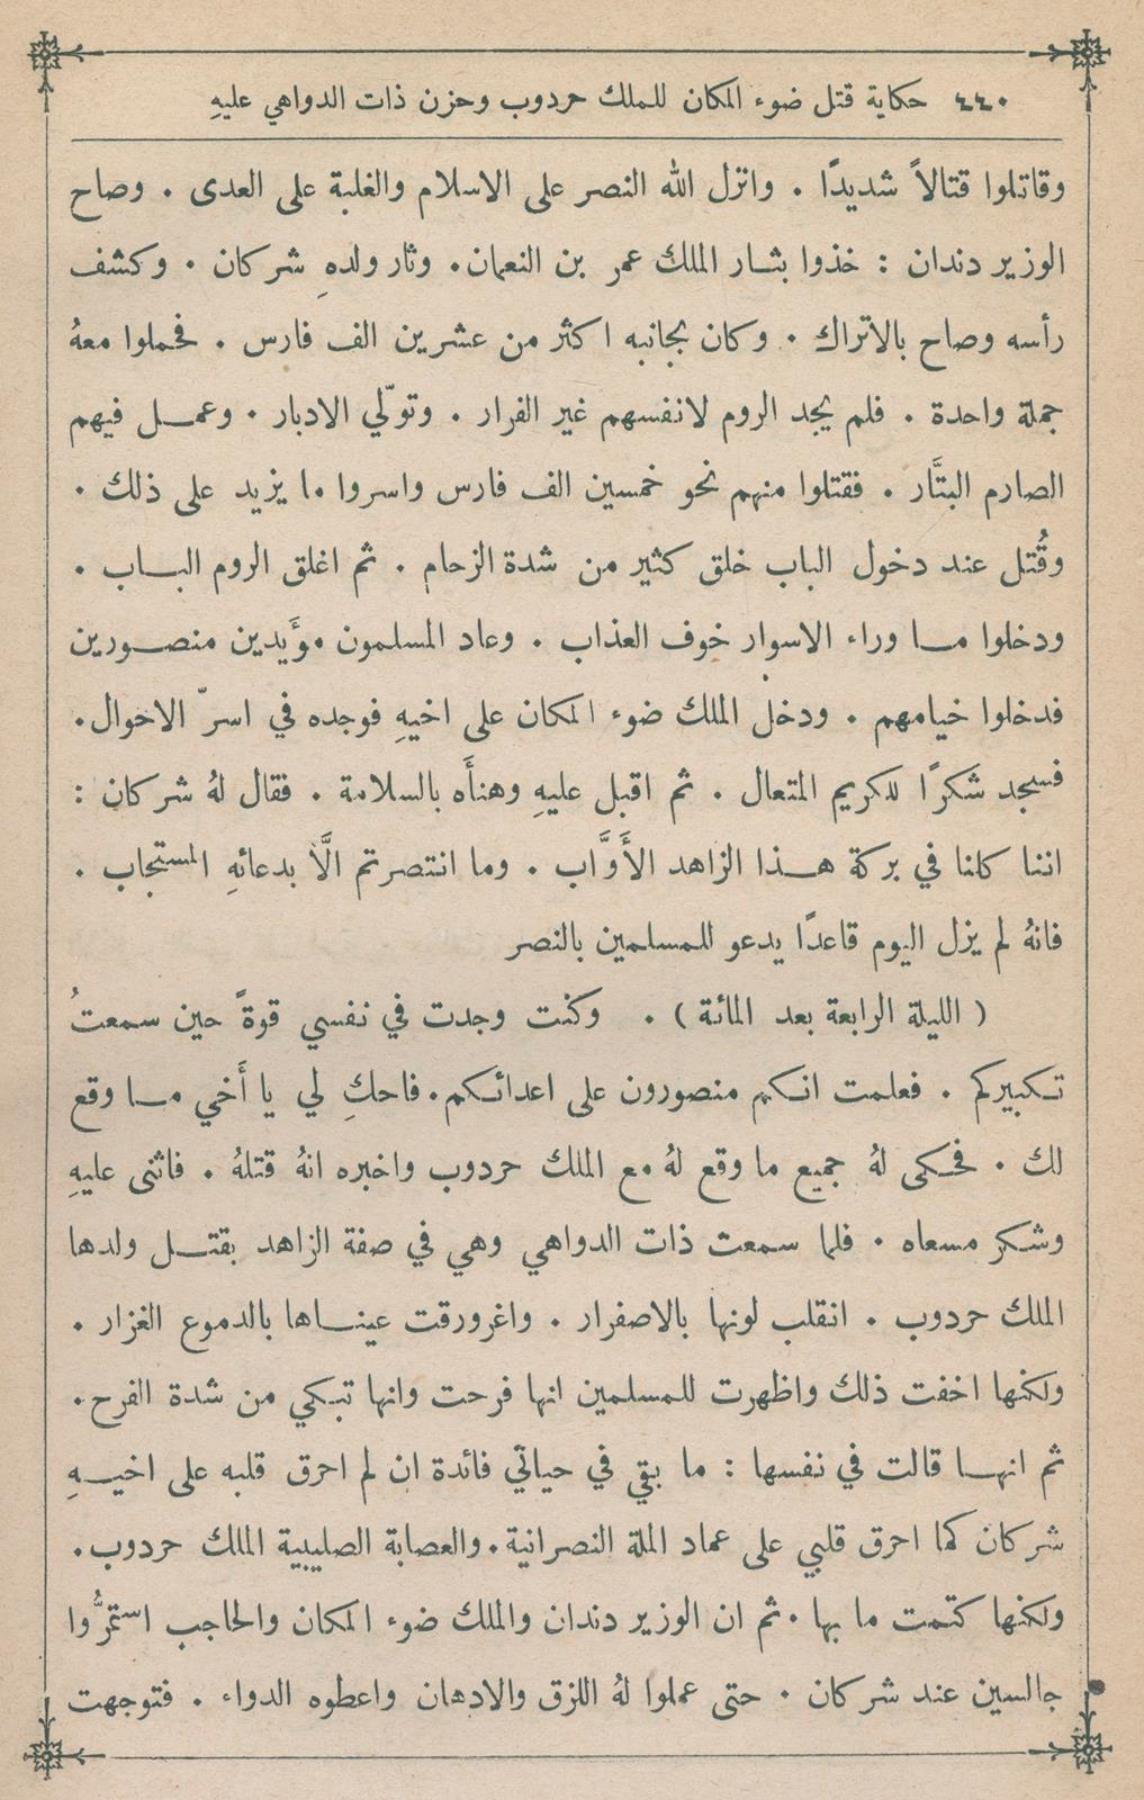 ٤٤٠ حكاية قتل ضوء المكان للملك حردوب وحزن ذات الدواهي عليهِ
وقاتلوا قتالاً شديدًا . وانزل الله النصر على الاسلام والغلبة على العدى . وصاح
الوزير دندان : خذوا بثار الملك عمر بن النعمان. وثار ولدهِ شركان . وكشف
رأسه وصاح بالاتراك . وكان بجانبه اكثر من عشرين الف فارس . فحملوا معهُ
جملة واحدة . فلم يجد الروم لانفسهم غير الفرار . وتولّي الادبار . وعمل فيهم
الصارم البتَّار . فقتلوا منهم نحو خمسين الف فارس واسروا ما يزيد على ذلك .
وقُتل عند دخول الباب خلق كثير من شدة الزحام . ثم اغلق الروم الباب .
ودخلوا ما وراء الاسوار خوف العذاب . وعاد المسلمون مؤَيدين منصورين
فدخلوا خيامهم . ودخل الملك ضوء المكان على اخيهِ فوجده في اسرّ الاحوال.
فسجد شكرًا للكريم المتعال . ثم اقبل عليهِ وهنأَه بالسلامة . فقال لهُ شركان :
اننا كلنا في بركة هذا الزاهد الأَوَّاب . وما انتصرتم الَّا بدعائهِ المستجاب .
فانهُ لم يزل اليوم قاعدًا يدعو للمسلمين بالنصر
( الليلة الرابعة بعد المائة ) . وكنت وجدت في نفسي قوةً حين سمعتُ
تكبيركم . فعلمت انكم منصورون على اعدائكم. فاحكِ لي يا أَخي ما وقع
لك . فحكى لهُ جميع ما وقع لهُ مع الملك حردوب واخبره انهُ قتلهُ . فاثنى عليهِ
وشكر مسعاه . فلما سمعت ذات الدواهي وهي في صفة الزاهد بقتل ولدها
الملك حردوب . انقلب لونها بالاصفرار . واغرورقت عيناها بالدموع الغزار .
ولكنها اخفت ذلك واظهرت للمسلمين انها فرحت وانها تبكي من شدة الفرح.
ثم انها قالت في نفسها : ما بقي في حياتي فائدة ان لم احرق قلبه على اخيهِ
شركان كما احرق قلبي على عماد الملة النصرانية. والعصابة الصليبية الملك حردوب.
ولكنها كتمت ما بها . ثم ان الوزير دندان والملك ضوء المكان والحاجب استمرُّوا
جالسين عند شركان . حتى عملوا لهُ اللزق والادهان واعطوه الدواء . فتوجهت